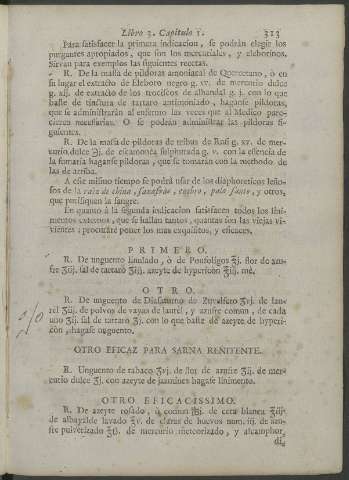 Libro 3. Capitulo 1. 313
Para satisfacer la primera indicacion, se podràn elegir los
purgantes apropiados, que son los mercuriales, y eleborinos.
Sirvan para exemplos las siguientes recetas.
R. De la massa de pildoras amoniacal de Quercetano, ò en
su lugar el extracto de Eleboro negro g. xv. de mercurio dulce
g. xij. de extracto de los trociscos de alhandal g j. con lo que
baste de tinctura de tartaro antimoniado, haganse pildoras,
que se administraràn al enfermo las veces que al Medico pare-
cieren necesarias. O se podràn administrar las pildoras si-
guientes.
R. De la massa de pildoras de tribus de Rasi g. xv. de mer-
curio dulce ℈j. de escamonéa sulphurada g. v. con la essencia de
la fumaria haganse pildoras, que se tomaràn con la methodo de
las de arriba.
A este mismo tiempo se podrà usar de los diaphoreticos leño-
sos de la raiz de china, saxafràs, cedro, palo santo, y otros,
que purifiquen la sangre.
En quanto à la segunda indicacion satisfacen todos los lini-
mentos externos, que se hallan tantos, quantas son las viejas vi-
vientes: procuraré poner los mas exquisitos, y eficaces.
PRIMERO.
R. De unguento linulado, ò de Ponfoligos ℥j. flor de azu-
fre ʒiij. sal de tartaro ʒiij. azeyte de hypericon ℥iij. mé.
OTRO.
R. De unguento de Diasaturno de Zuvelfero ʒvj. de lau-
rèl ʒiij. de polvos de vayas de laurèl, y azufre comun, de cada
uno ʒij. sal de tartaro ʒj. con lo que baste de azeyte de hyperi-
cón, hagase unguento.
OTRO EFICAZ PARA SARNA RENITENTE.
R. Unguento de tabaco ʒvj. de flor de azufre ʒij. de mer-
curio dulce ʒj. con azeyte de jazmines hagase linimento.
OTRO EFICACISSIMO.
R. De azeyte rosado, ò comun ℔j. de cera blanca ℥iij.
de albayalde lavado ℥v. de claras de huevos num. iij. de azu-
fre pulverizado ℥ß. de mercurio meteorizado, y alcamphor,
di.